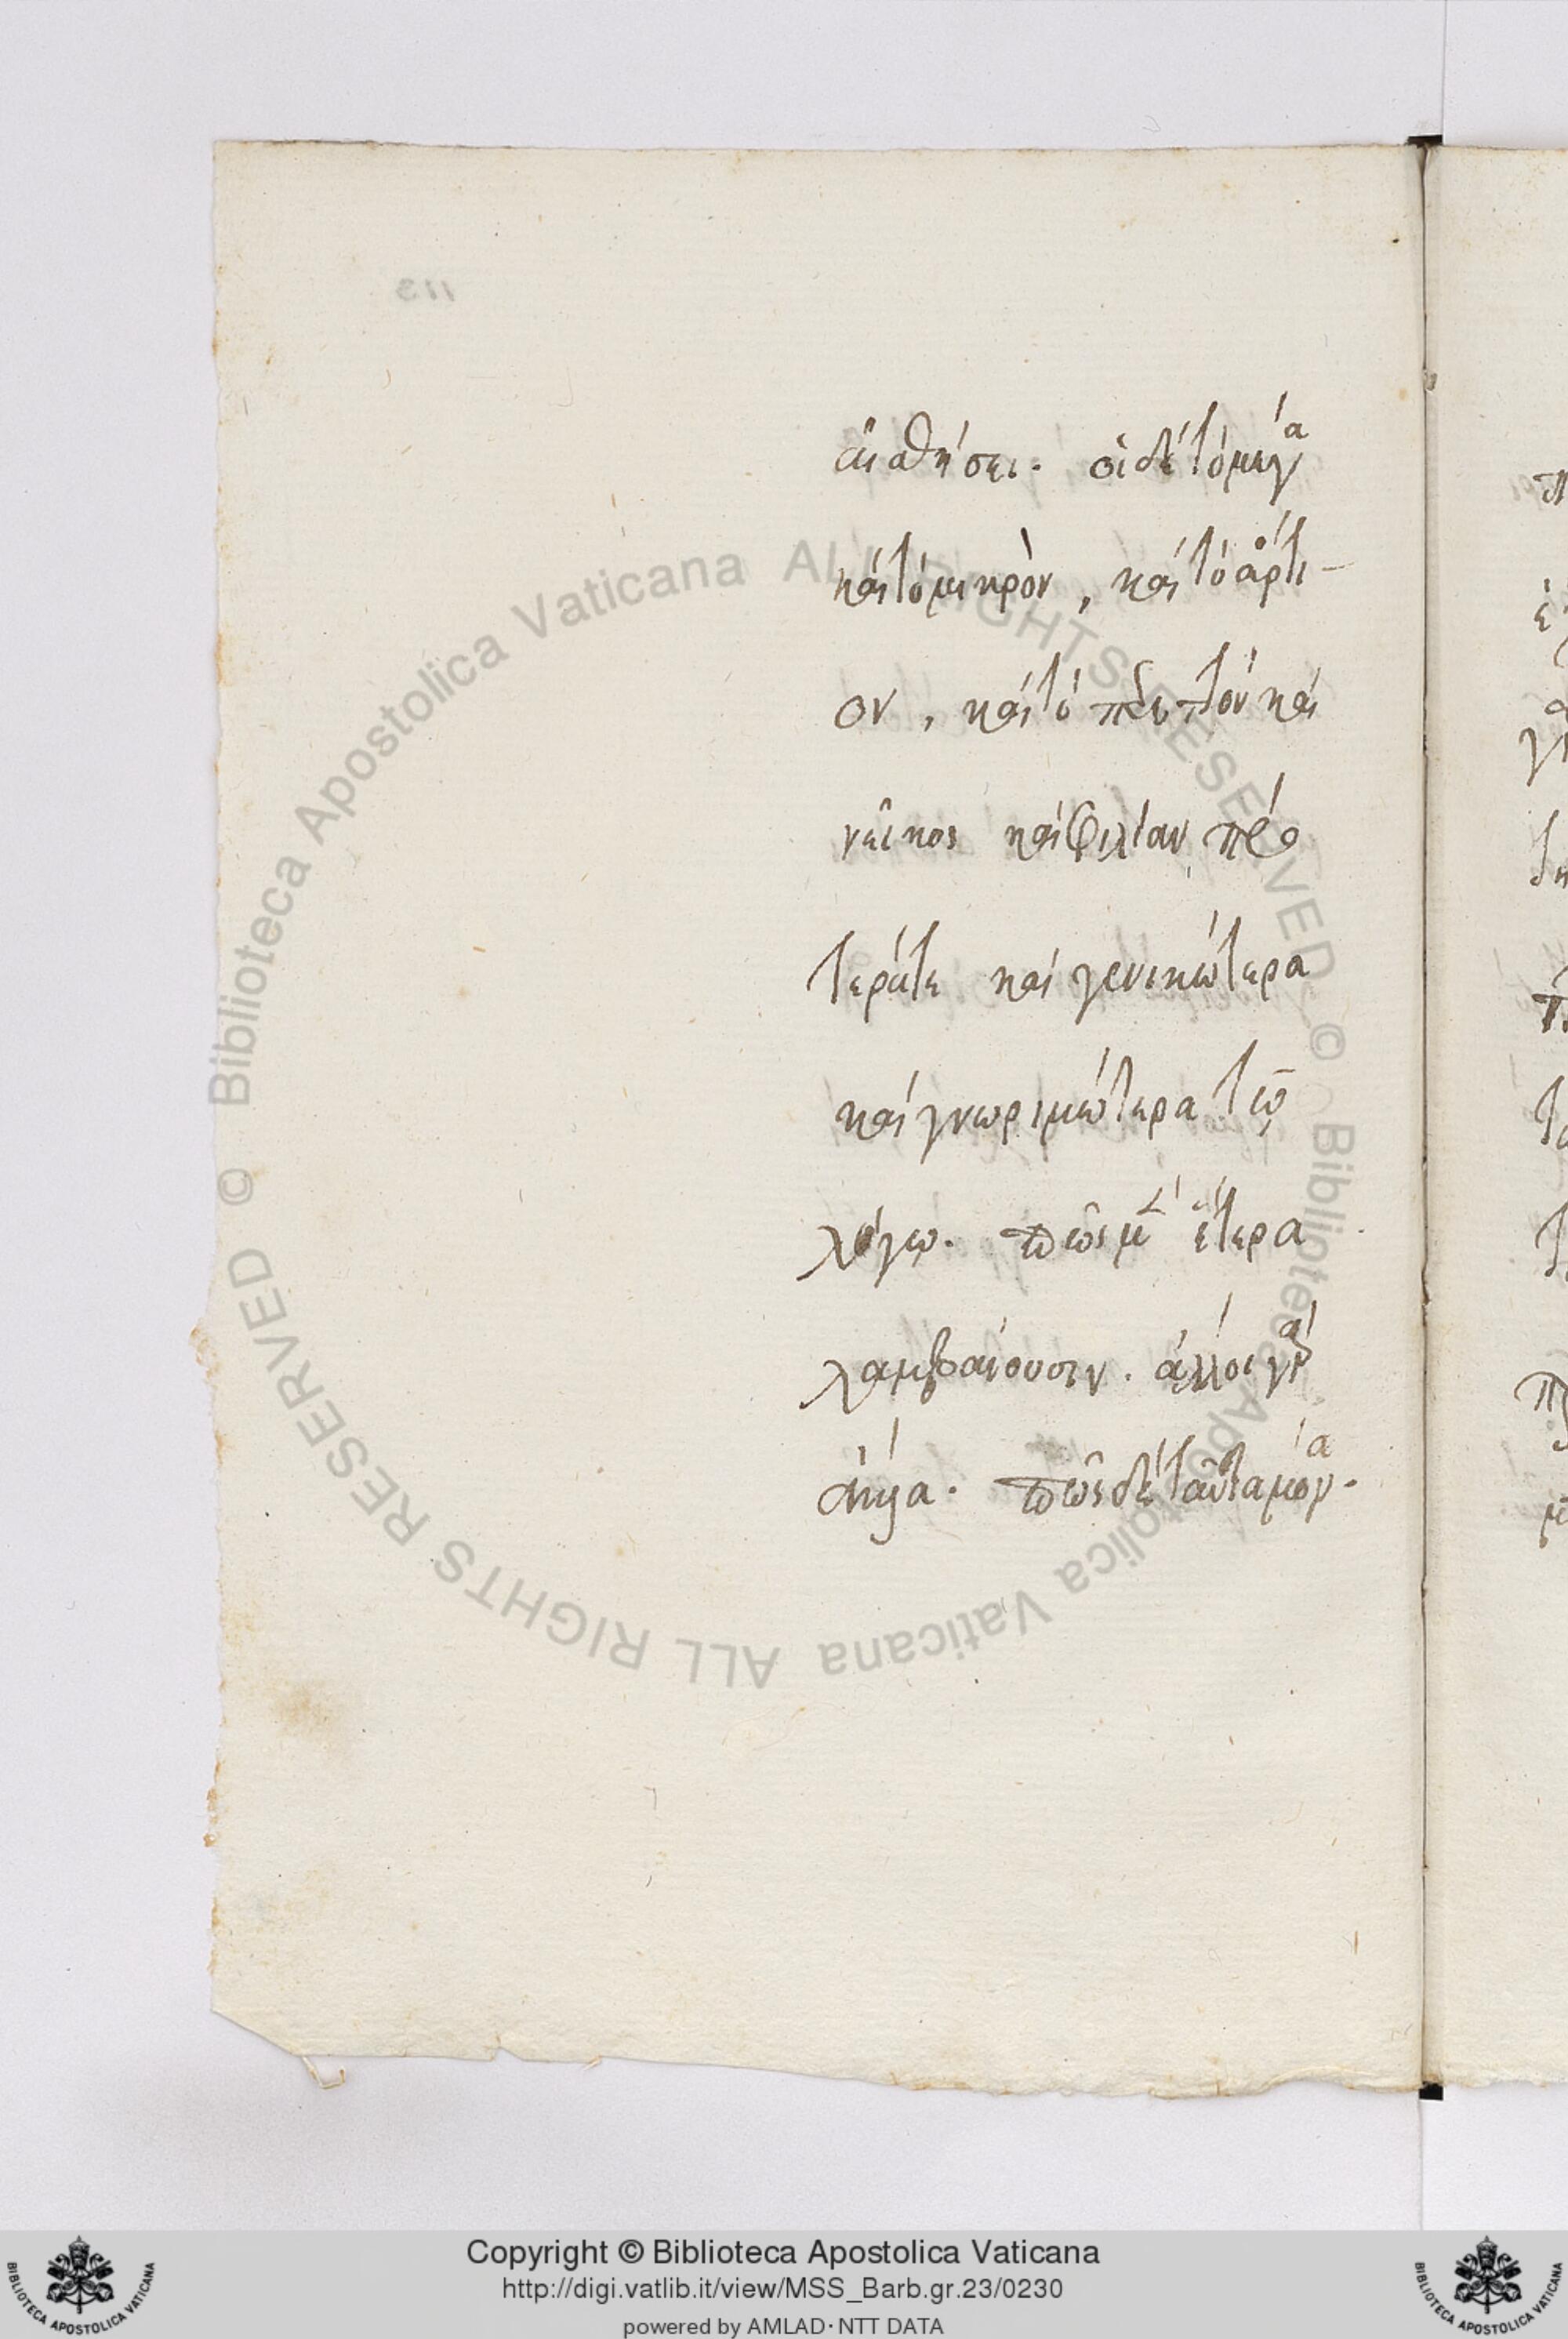 113
αἰσθήσει. οἱ δὲ τὸ μέγα
καὶ τὸ μικρὸν, καὶ τὸ ἄρτι-
ον, καὶ τὸ περιττὸν καὶ
νεῖκος καὶ φιλίαν πρό
τερά τε καὶ γενικώτερα
καὶ γνωριμώτερα τῷ
λόγῳ. πῶς μὲν ἕτερα
λαμβάνουσιν. ἄλλοι γὰρ
ἄλλα. πῶς δὲ ταῦτα μόνα.
© Biblioteca Apostolica Vaticana ALL RIGHTS RESERVED
© Biblioteca Apostolica Vaticana ALL RIGHTS RESERVED
Copyright © Biblioteca Apostolica Vaticana
http://digi.vatlib.it/view/MSS_Barb.gr.23/0230
powered by AMLAD·NTT DATA
BIBLIOTECA APOSTOLICA VATICANA
BIBLIOTECA APOSTOLICA VATICANA